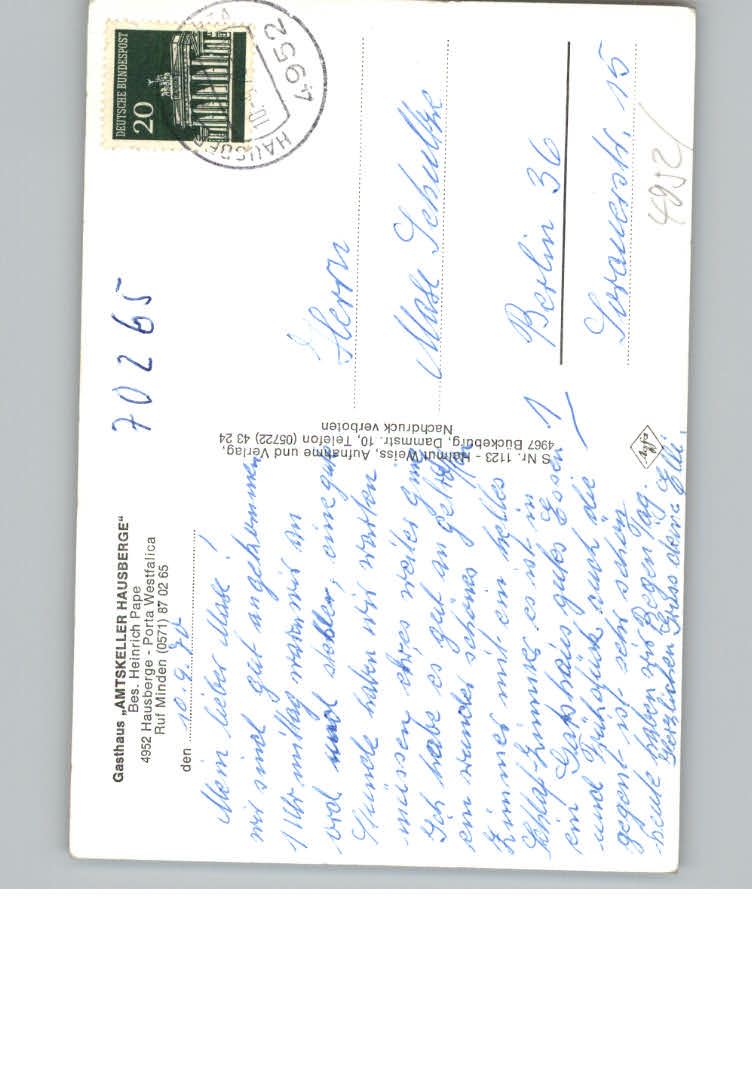 Gasthaus „AMTSKELLER HAUSBERGE"
Bes. Heinrich Pape
4952 Hausberge - Porta Westfalica
Ruf Minden (0571) 87 02 65
den 10.9.70
70265
Mein lieber Maxe!
wir sind gut angekommen
1 Uhr mittag waren wir in
und eine gute
Stunde haben wir warten
müssen ehes weiter ging
Ich habe es gut an getroffen
ein wunder schönes
Zimmer mit ein helles
Schlaf-Zimmer es ist in
ein Gasthaus gutes Essen
und Frühstück auch die
gegent ist sehr schön
heute haben wir Regen Tag.
Herzlichen Gruss deine Elli.
S Nr. 1123 - Helmut Weiss, Aufnahme und Verlag,
4967 Bückeburg, Dammstr. 10, Telefon (05722) 43 24
Nachdruck verboten
agfa
DEUTSCHE BUNDESPOST
20
4952
HAUSBER
10.-9.
Herrn
Maxe Schultze
1 Berlin 36
Sorauerstr. 15
4952/